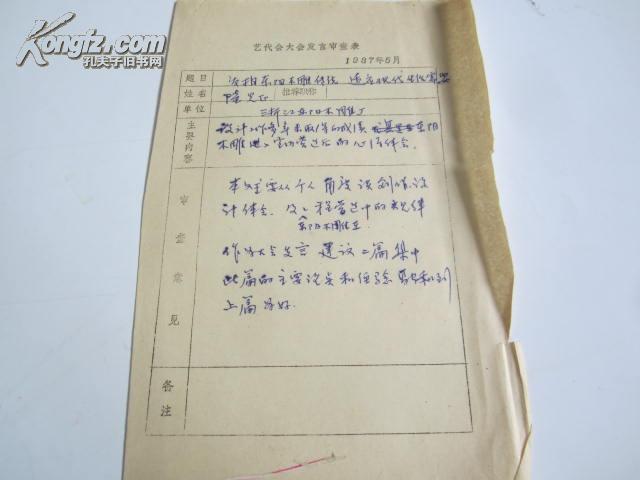 Kongfz.com
孔夫子旧书网
艺代会大会发言审查表
1987年5月
题目 东阳木雕传统 适应现代生活需要
姓名 陆光正 推荐职称
单位 浙江东阳木雕厂
主要内容 设计工作多年来取得的成绩 东阳
木雕 室内 的心得体会。
审查意见
本文主要从个人角度谈创作设
计体会。及工程 中的规律
东阳木雕
作为大会发言 建议二篇集中
此篇的主要论点和经验 到
上篇为好.
备注